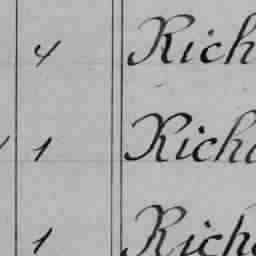 4 Rich
1 Richa
1 Richa